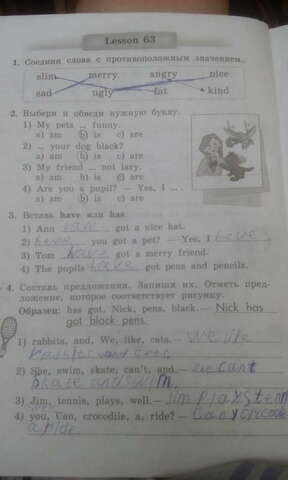 Lesson 63
1. Соедини слова с противоположным значением.
slim merry angry nice
sad ugly fat kind
2. Выбери и обведи нужную букву.
1) My pets ... funny.
a) am b) is c) are
2) ... your dog black?
a) am b) is c) are
3) My friend ... not lazy.
a) am b) is c) are
4) Are you a pupil? — Yes, I ... .
a) am b) is c) are
3. Вставь have или has.
1) Ann got a nice hat.
2) have you got a pet? — Yes, I have.
3) Tom have got a merry friend.
4) The pupils have got pens and pencils.
4. Составь предложения. Запиши их. Отметь пред-
ложение, которое соответствует рисунку.
Образец: has got, Nick, pens, black. — Nick has
got black pens.
1) rabbits, and, We, like, cats. — We like
rabbits and cats.
2) She, swim, skate, can't, and. — cant
skate and swim.
3) Jim, tennis, plays, well. — Jim plays tenn
4) you, Can, crocodile, a, ride? —
a ride